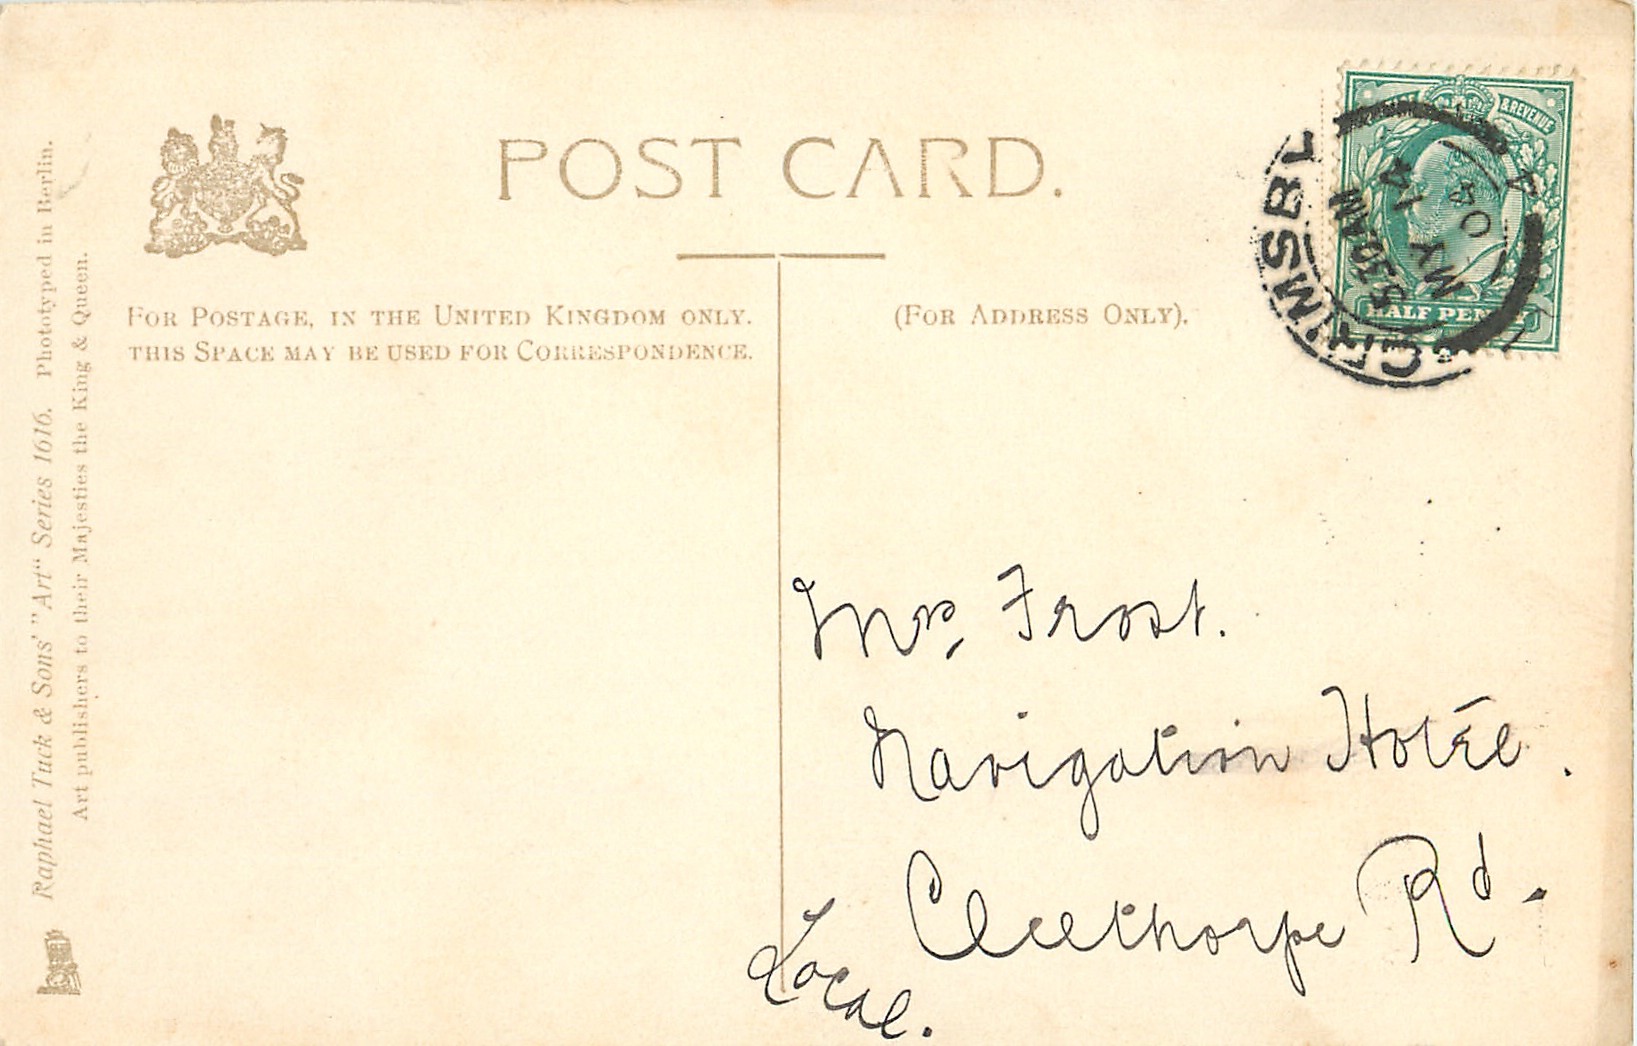 POST CARD.
FOR POSTAGE, IN THE UNITED KINGDOM ONLY.
THIS SPACE MAY BE USED FOR CORRESPONDENCE.
(FOR ADDRESS ONLY).
& REVENUE
HALF PENNY
GRIMSBY
5 30 AM
MY 14
04
Mrs. Frost.
Navigation Hotel.
Cleethorpe Rd.
Local.
Raphael Tuck & Sons' "Art" Series 1616. Phototyped in Berlin.
Art publishers to their Majesties the King & Queen.